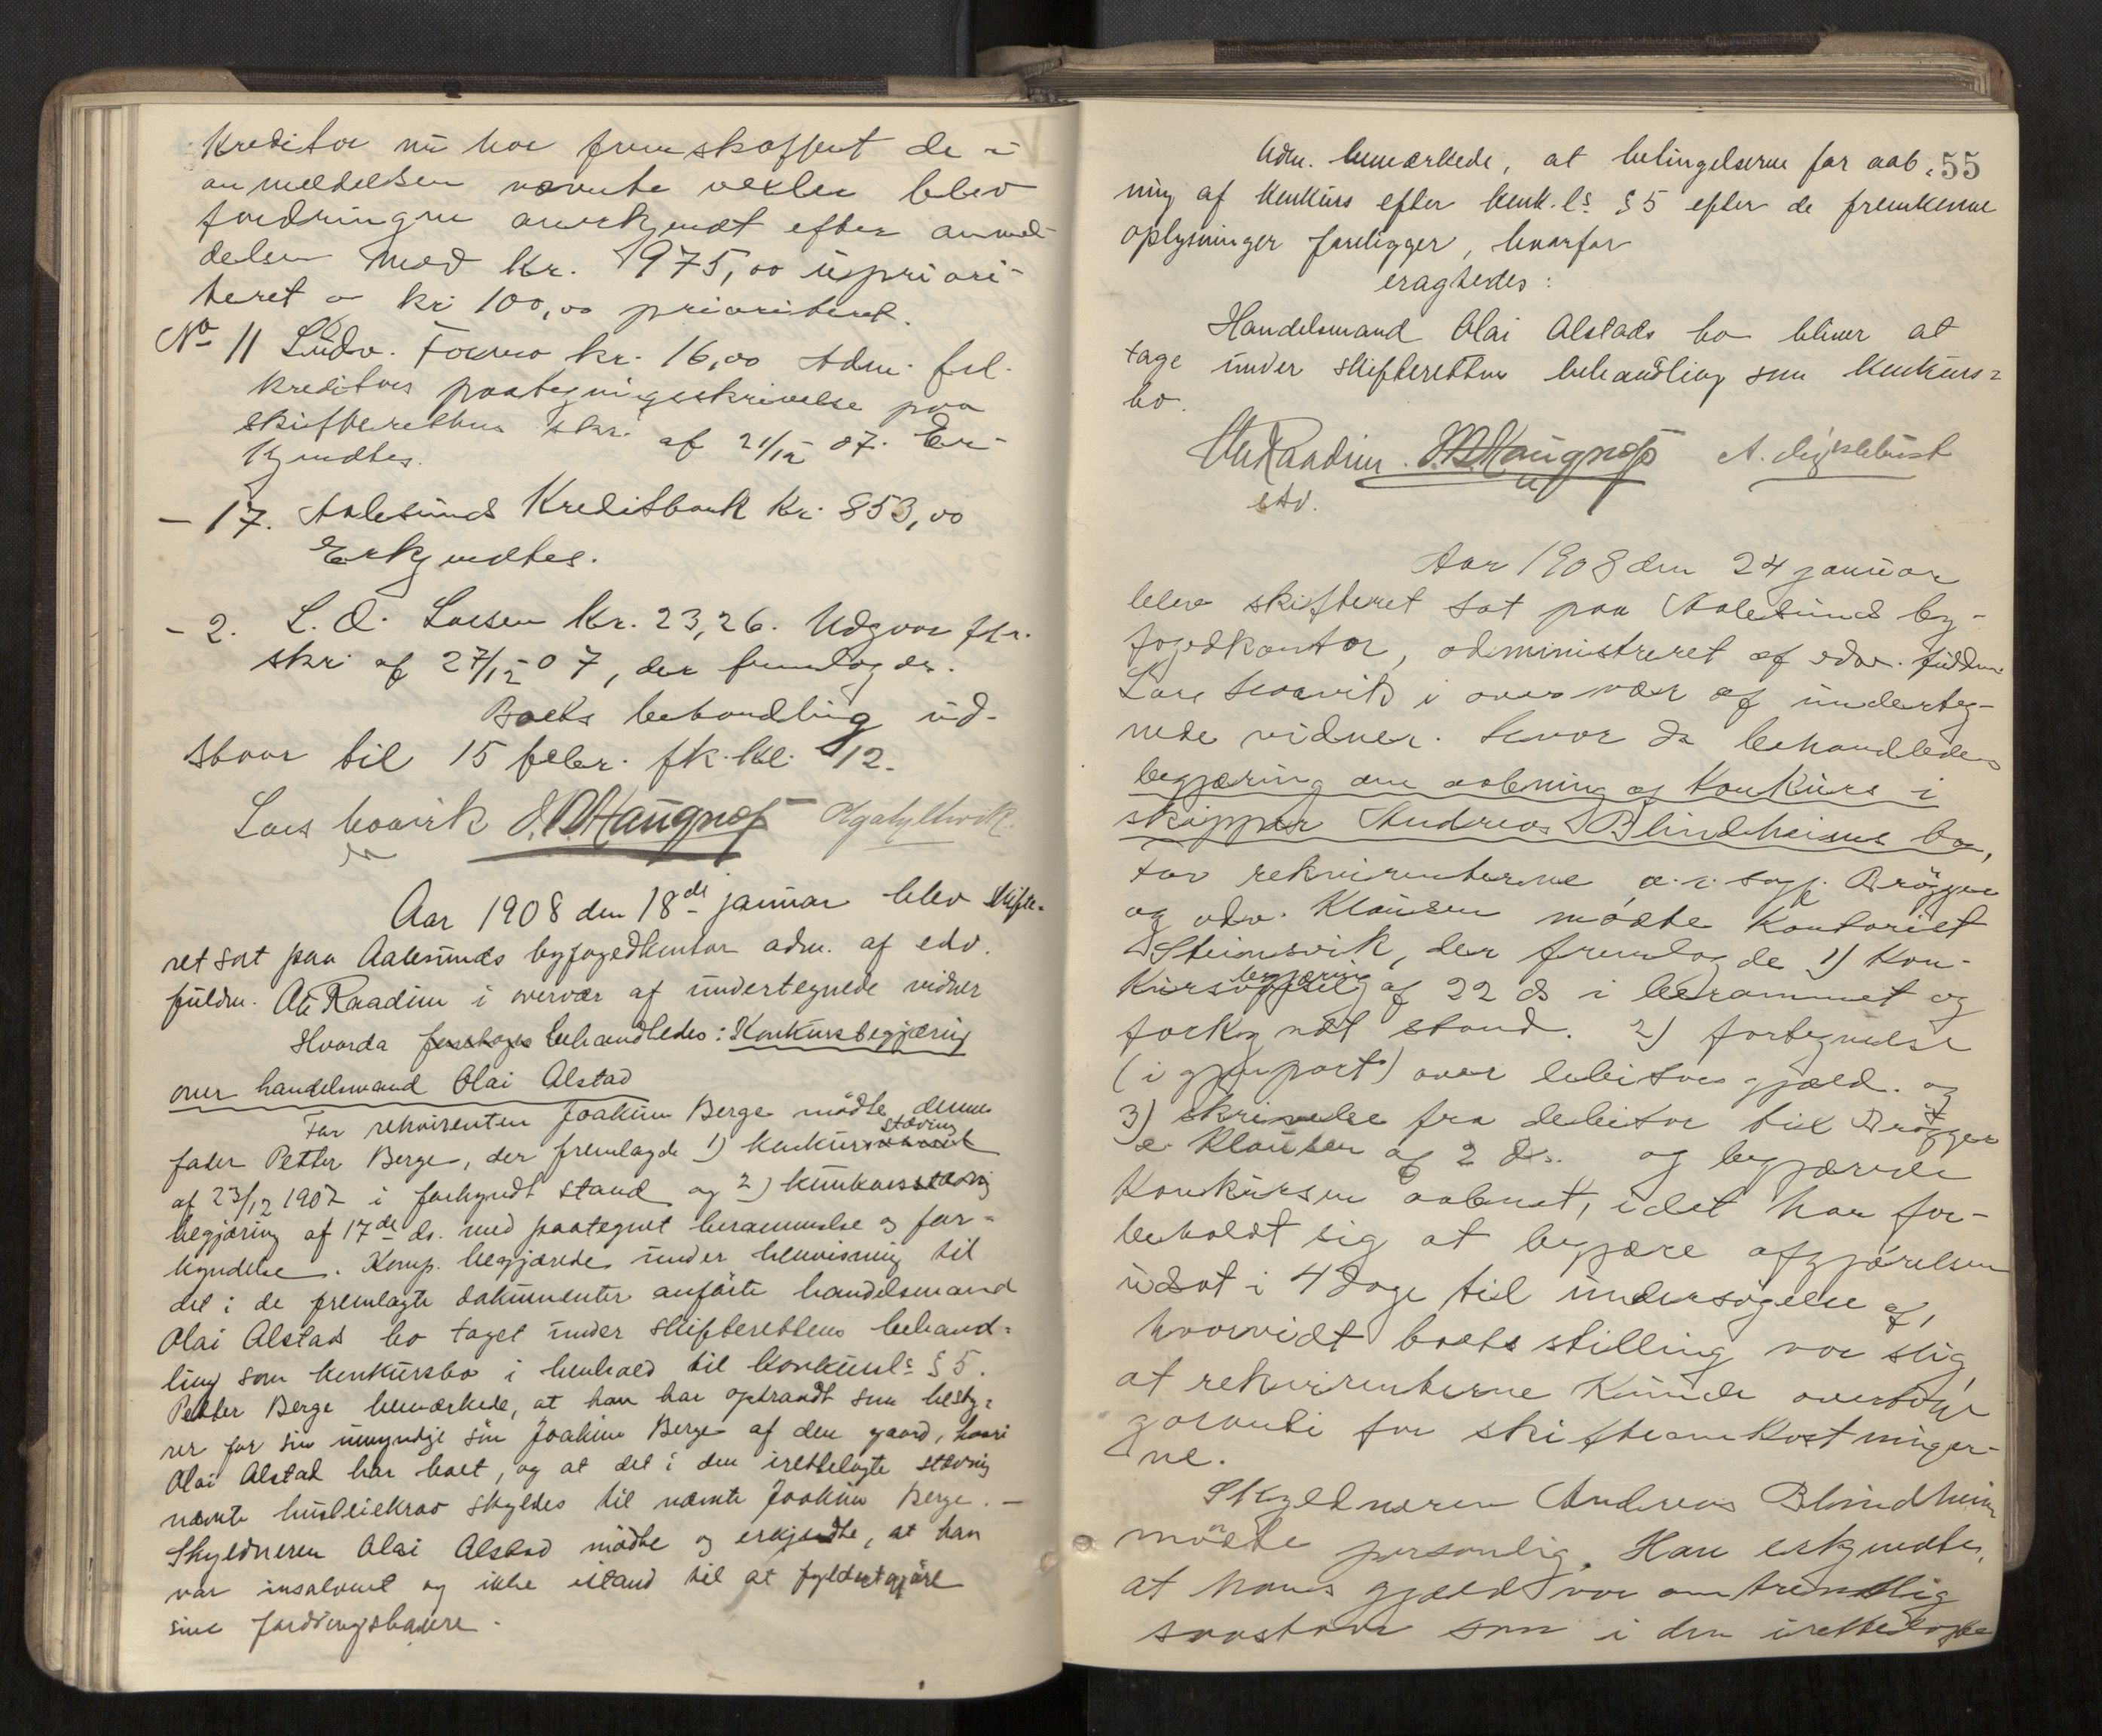 Kreditor nu har fremskaffet de i
anmeldelsen nævnte vexler blev
fordringen anerkjendt efter anmel-
delsen med kr. 975,00 upriori-
teret o kr 100,00 prioriteret.
No 11 Ludv. kr. 16,00 Adm. frl.
kreditors paategningsskrivelse paa
skifterettens skr. af 21/12 07. Er-
kjendtes.
- 17. Aalesunds Kreditbank kr. 853,00
Erkjendtes.
- 2. L. O. Larsen kr. 23,26. Udgaar
skr. af 27/12 07, der fremlagdes.
Boets behandling ud-
staar til 15 febr. fk. kl. 12.
Lars Hovik
Aar 1908 den 18de januar blev skifte-
ret sat paa Aalesunds byfogedkontor adm. af edv.
fuldm. Raadim i overvær af undertegnede vidner
Hvorda behandledes: Konkursbegjæring
over handelsmand Olai Alstad
For rekvirenten Joakim Berge mødte dennes
stævning
fader Petter Berge, der fremlagde 1) konkurs
af 23/12 1907 i forkyndt stand og 2) konkurs
begjæring af 17de ds. med paategnet berammelse og for-
kyndelse. Komp. begjærede under henvisning til
det i de fremlagte dokumenter anførte handelsmand
Olai Alstads bo taget under skifterettens behand-
ling som konkursbo i henhold til konkursl. § 5.
Petter Berge bemærkede, at han har optraadt som besty-
rer for sin umyndige søn Joakim Berge af den gaard, hvori
Olai Alstad har boet, og at det i den irettelagte stævning
nævnte husleiekrav skyldes til nævnte Joakim Berge. -
Skyldneren Olai Alstad mødte og erkjendte, at han
var insolvent og ikke istand til at fyldestgjøre
sine fordringshavere.
55
Adm. bemærkede, at betingelserne for aab-
ning af konkurs efter konk.ls. § 5 efter de fremkomne
oplysninger foreligger, hvorfor
eragtedes:
Handelsmand Olai Alstads bo bliver at
tage under skifterettens behandling som konkurs-
bo.
Raadim
edv.
Aar 1908 den 24 januar
blev skifteret sat paa Aalesunds by-
fogedkontor, administreret af edsv. fuldm.
Lars Hovik i overvær af underteg-
nede vidner. Hvor da behandledes
begjæring om aabning af konkurs i
skipper Andreas Blindheims bo,
For rekvirenterne, o.r. sagf. Brøgger
og adv. Klausen mødte kontorist
Steinsvik, der fremlagde 1) Kon-
begjæring
kurs af 22 ds i berammet og
forkyndt stand. 2) fortegnelse
(i gjenpart) over debitors gjæld. og
3) skrivelse fra debitor til Brøgger
& Klausen af 2 ds. og begjærede
Konkursen aabnet, idet han for-
beholdt sig at begjære afgjørelsen
udsat i 4 dage til undersøgelse af,
hvorvidt boets stilling var slig,
at rekvirenterne kunde overtage
garanti for skifteomkostninger-
ne.
Skyldneren Andreas Blindheim
mødte personlig. Han erkjendte,
at hans gjæld var omtrentlig
saastor som i den irettelagte